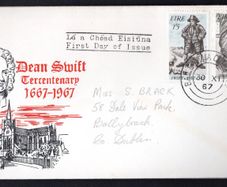 Lá a Chéad Eisiúna
First Day of Issue
ÉIRE
15
Dean Swift
Tercentenary
1667-1967
30
XI
67
Miss S. BRACK
58 Dale View Park,
Ballybrack,
Co. Dublin.